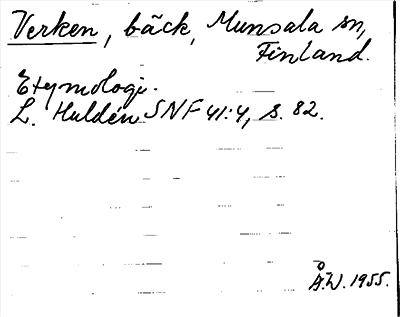 Verken, bäck, Munsala sn,
Finland.
Etymologi.
L. Huldén SNF 41:4, s. 82.
Å.W. 1955.